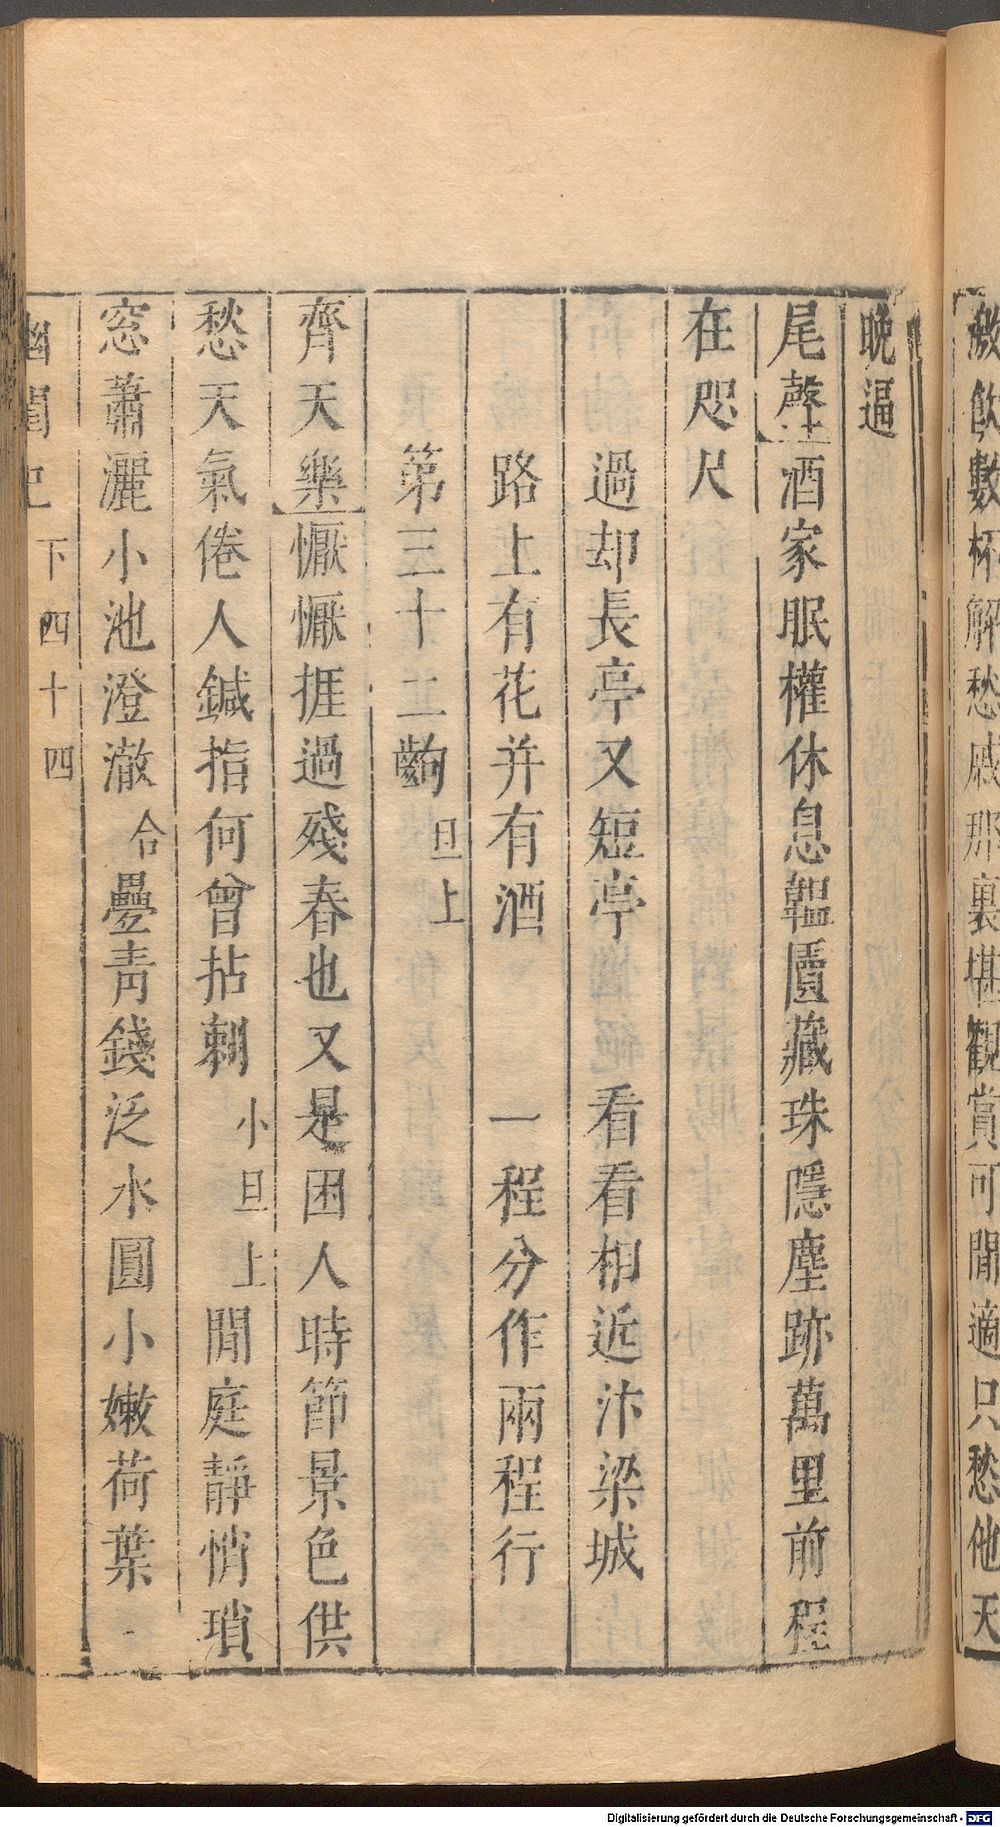 激飲數杯解愁戚那裏堪觀賞可閒適只愁他天
晚逼
尾聲酒家眠權休息韞匵藏珠隱塵跡萬里前程
在咫尺
過却長亭又短亭　看看相近汴梁城
路上有花并有酒　一程分作兩程行
第三十二齣 旦上
齊天樂懨懨捱過殘春也又是困人時節景色供
愁天氣倦人鍼指何曾拈刺 小旦上 閒庭靜悄瑣
窓蕭灑小池澄澈 合 疊青錢泛水圓小嫩荷葉
幽閨記 下 四十四
Digitalisierung gefördert durch die Deutsche Forschungsgemeinschaft - DFG